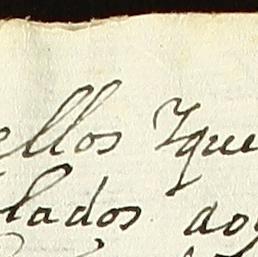 ellos Yque
lados aog